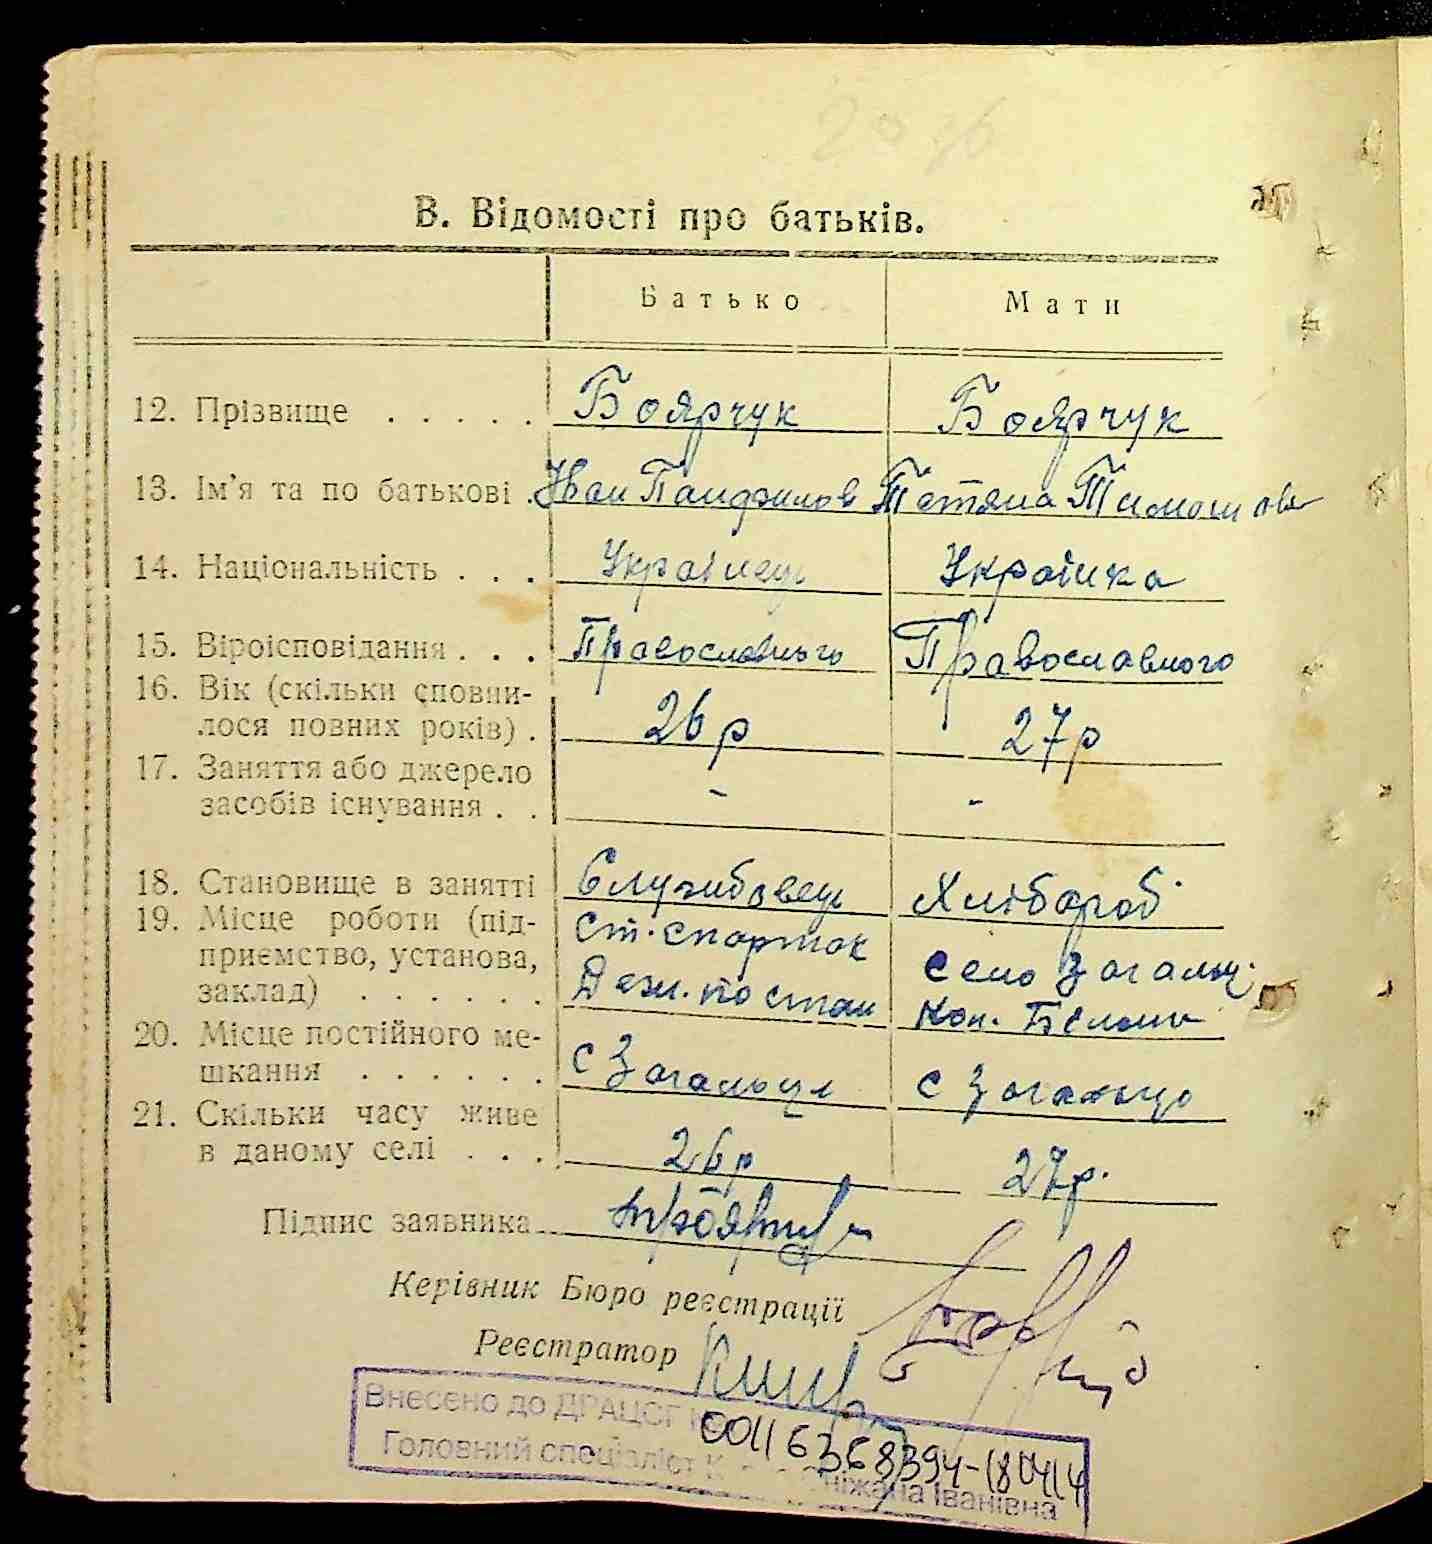 В. Відомості про батьків.
Батько Мати
12. Прізвище . . . . . Боярчук Боярчук
13. Ім'я та по батькові . Іван Панфилов Тетяна Тимош
14. Національність . . . Українець Українка
15. Віроісповідання . . . Православного Православного
16. Вік (скільки сповни-
лося повних років) . 26 р 27 р
17. Заняття або джерело
засобів існування . . - -
18. Становище в занятті Службовець Хлібороб
19. Місце роботи (під- Ст.
приємство, установа, село
заклад) . . . . . .
20. Місце постійного ме-
шкання . . . . . . с Загальці с Загальці
21. Скільки часу живе
в даному селі . . . 26 р 27 р.
Підпис заявника
Керівник Бюро реєстрації
Реєстратор
Внесено до ДРАЦСГ
00116368394-
Головний спеціаліст Іванівна